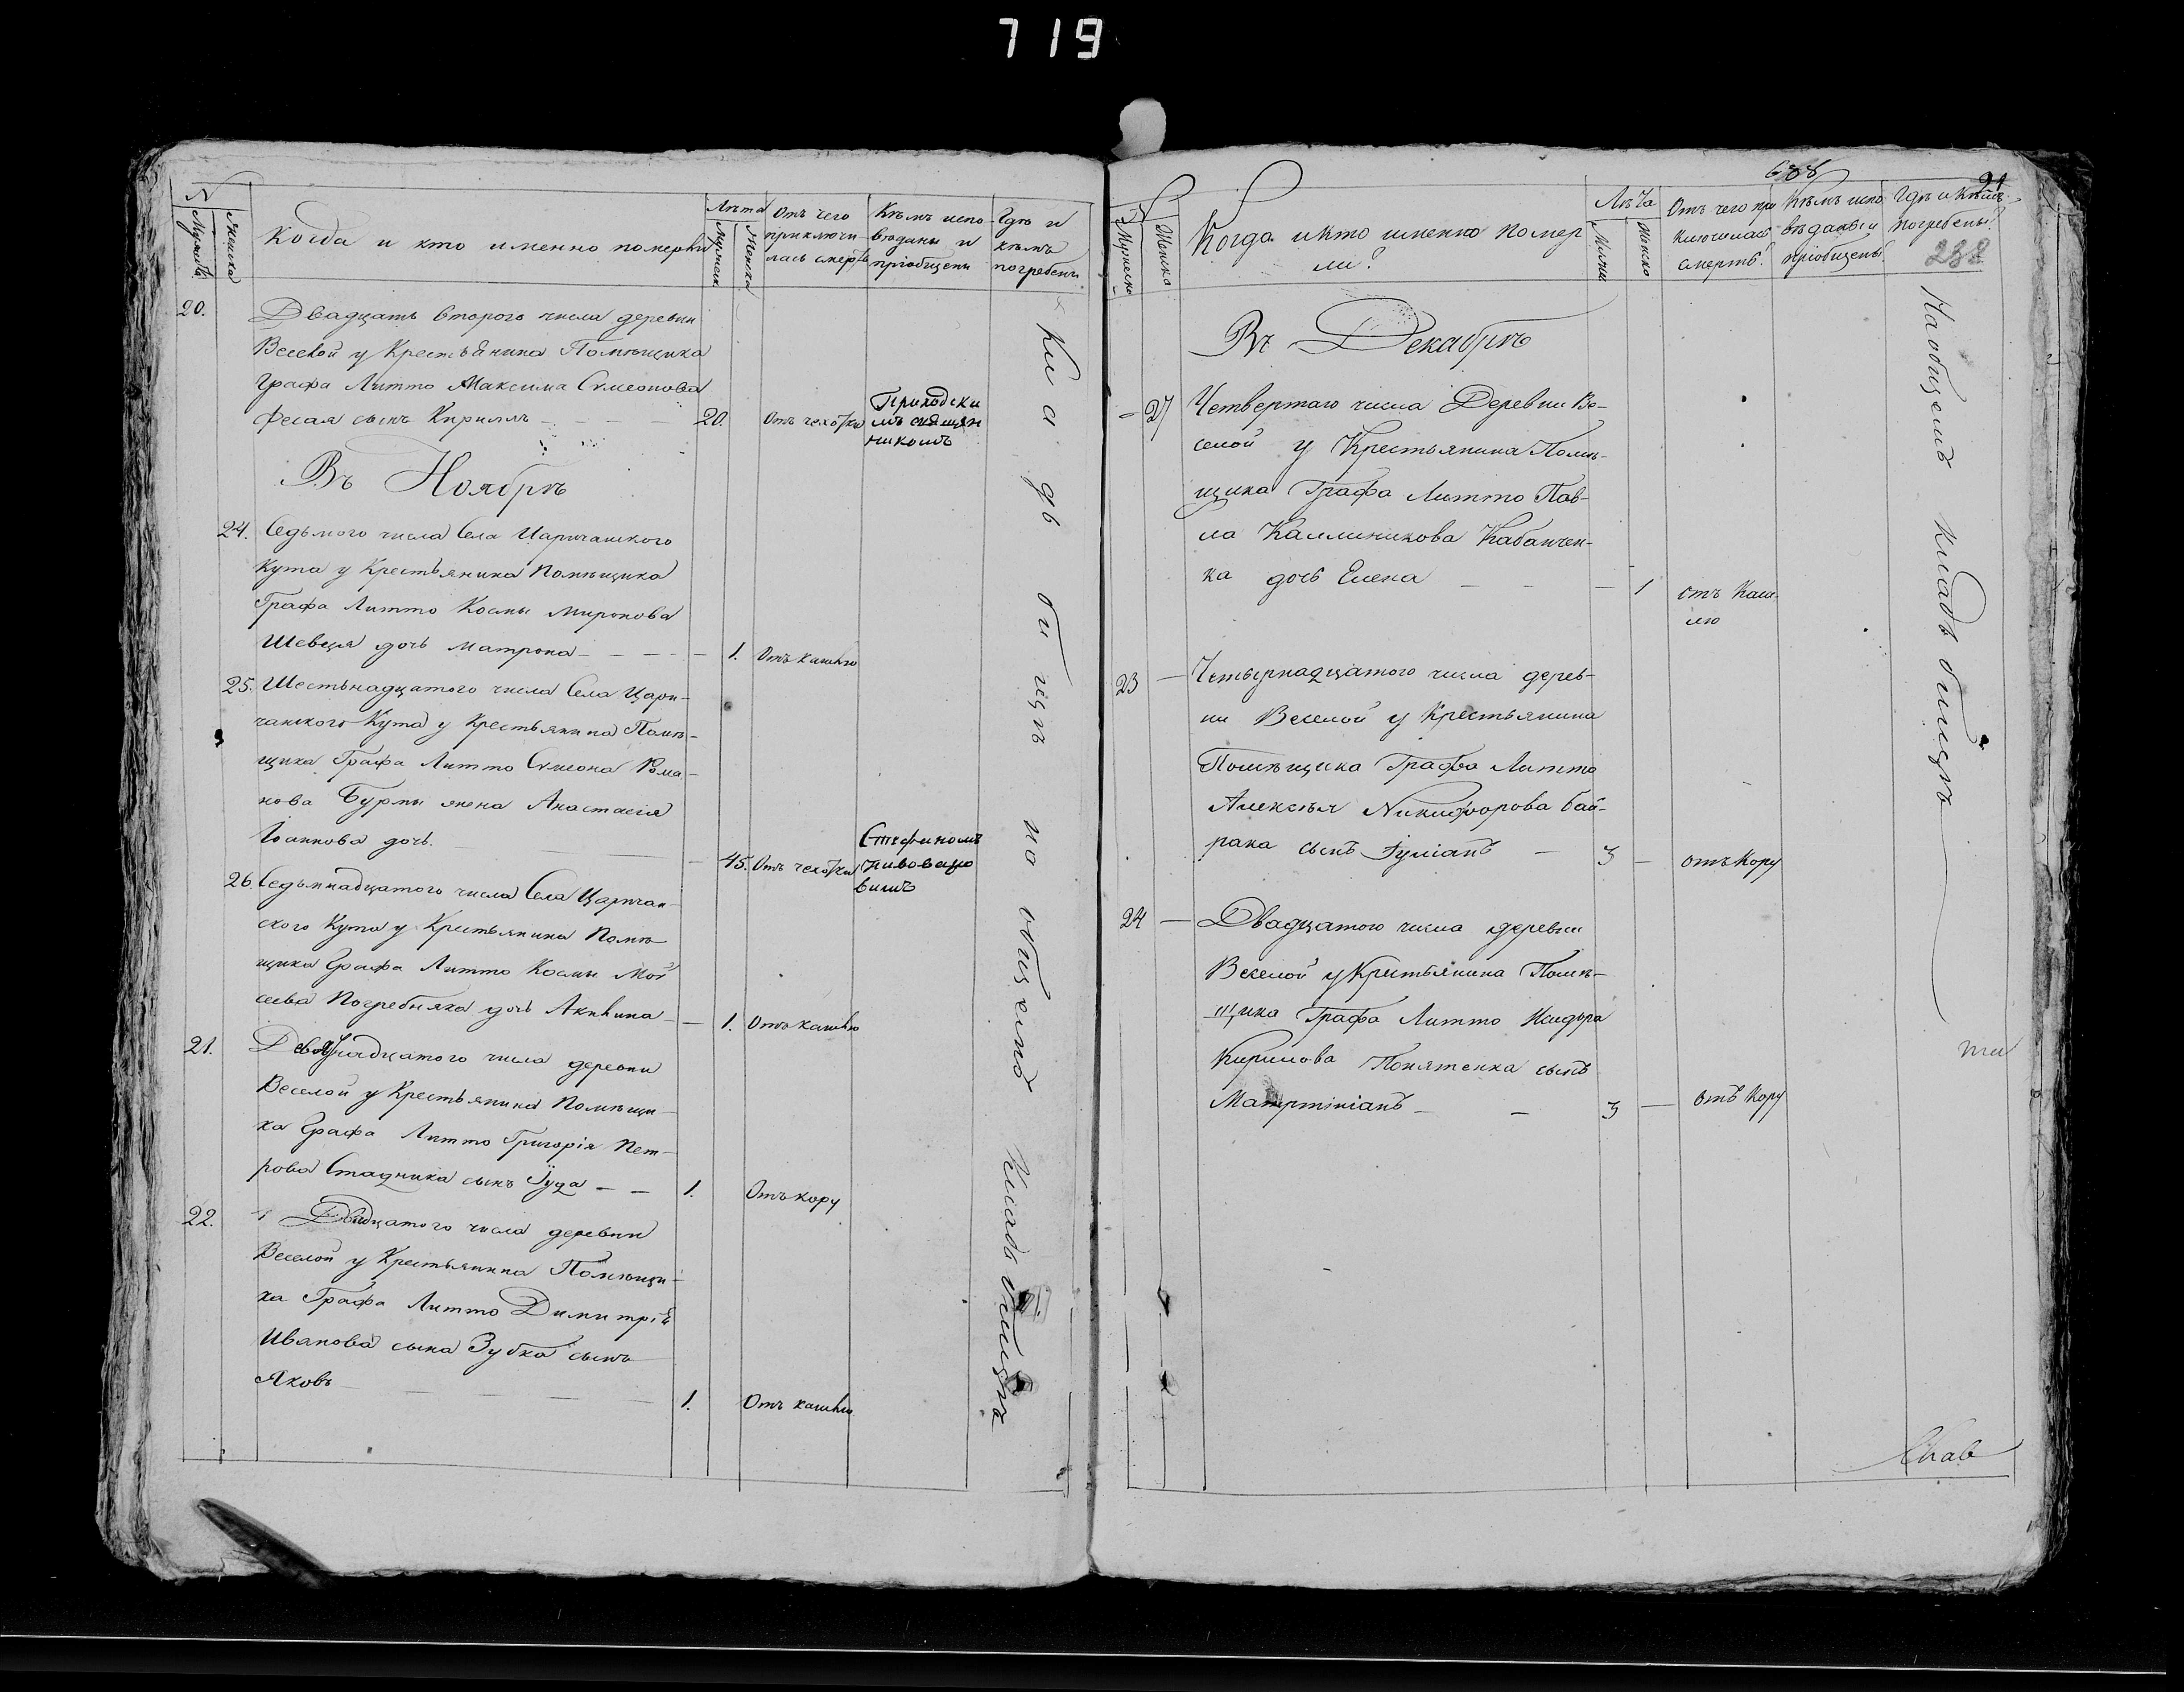 719
N
Мужеска
Женска
Когда и кто именно померъ
Лѣта
Мужеск
Женска
Отъ чего
приключи
лась смерть
Кѣмъ испо
вѣданы и
пріобщены
Гдѣ и
кѣмъ
погребены
20.
Двадцать второго числа деревни
Веселой у Крестьянина Помѣщика
Графа Литто Максима Сѵмеонова
сынъ Кириллъ
20.
Отъ чехотки
Приходски
мъ священ
никомъ
Въ Ноябрѣ
24.
Седьмого числа Села Царичанского
Кута у Крестьянина Помѣщика
Графа Литто Космы Миронова
Шевця дочь Матрона
1.
Отъ кашлю
25.
Шестьнадцатого числа Села Цари-
чанского Кута у Крестьянина Помѣ-
щика Графа Литто Сѵмеона Рома-
нова Бурмы жена Анастасія
Іоаннова дочь.
45.
Отъ чехотки
Стефаномъ
26.
Седьмнадцатого числа Села Царичан-
ского Кута у Крестьянина Помѣ-
щика Графа Литто Космы Мой
сеева Погребняка дочь Акилина
1.
Отъ кашлю
21.
числа деревни
Веселой у Крестьянина Помѣщи-
ка Графа Литто Григорія Пет-
рова Стадника сынъ Іуда
1.
Отъ кору
22.
Двадцатого числа деревни
Веселой у Крестьянина Помѣщи-
ка Графа Литто Димитрія
Иванова сына Зубка сынъ
Яковъ
1.
Отъ кашлю
на общемъ кладбищѣ
688
21
238
N
Мужеска
Женска
Когда и кто именно помер
ли?
Лѣта
Женска
Отъ чего при
ключилась
смерть?
Кѣмъ испо
вѣданы и
пріобщены?
Гдѣ и Кѣмъ
погребены?
Въ Декабрѣ
27
Четвертаго числа Деревни Ве-
селой у Крестьянина Помѣ-
щика Графа Литто Пав-
ла Каллиникова Кабанчен-
ка дочь Елена
1
отъ Каш-
лю
23
Четырнадцатого числа дерев-
ни Веселой у Крестьянина
Помѣщика Графа Литто
Алексѣя Никифорова Бай-
рака сынъ Іуліанъ
3
отъ Кору
24
Двадцатого числа деревни
Веселой у Крестьянина Помѣ-
щика Графа Литто Исидора
Кирилова Понятенка сынъ
Мартиніанъ
3
отъ Кору
На общемъ кладбищѣ